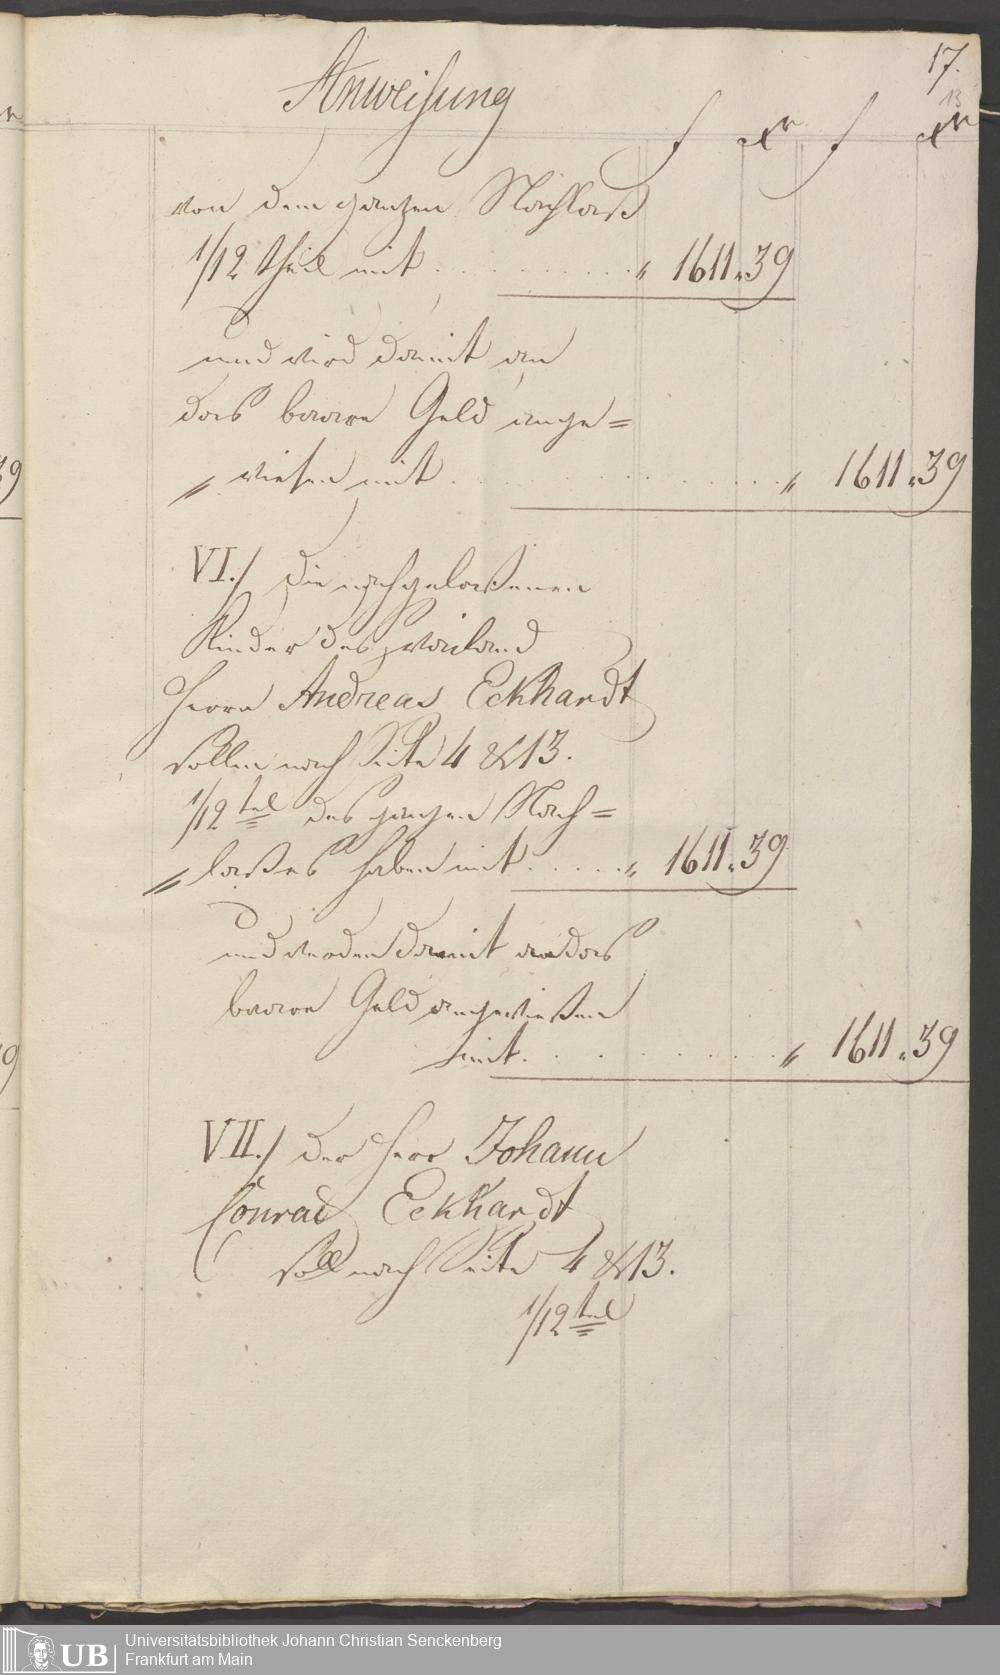 17.
13
Anweisung
f xr f xr
von dem ganzen Nachlaß
1/12 theil mit . . . . . . . . . . " 1611 " 39
und wird damit an
das baare Geld ange=
" wiesen mit . . . . . . . . . . . . " 1611 " 39
VI./ Die nachgelaßenen
Kinder des weiland
Herrn Andreas Eckhardt
sollen nach Seite 4 & 13.
1/12 tel des ganzen Nach=
" laßes haben mit . . . . . " 1611 " 39
und werden damit an das
baare Geld angewießen
mit . . . . . . . . . . " 1611 " 39
VII./ Der Herr Johann
Conrad Eckhardt
soll nach Seite 4 & 13.
1/12 tel
UB
Universitätsbibliothek Johann Christian Senckenberg
Frankfurt am Main